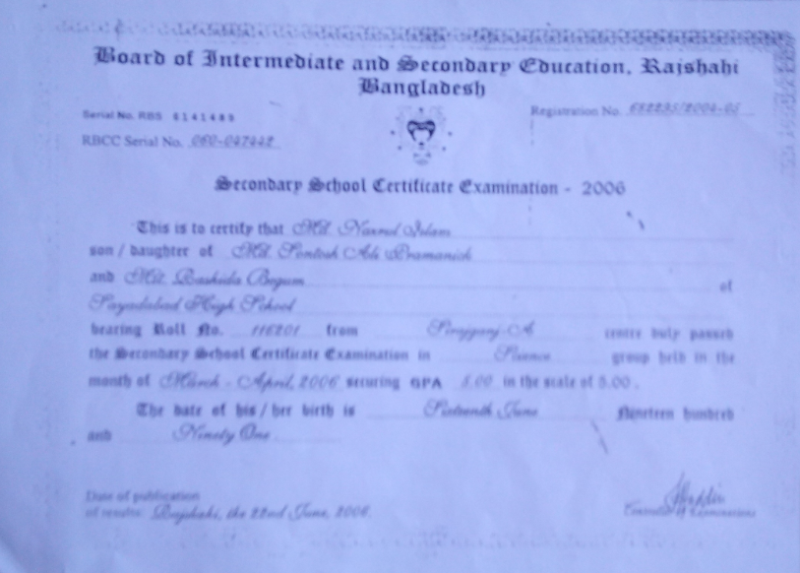 Board of Intermediate and Secondary Education, Rajshahi
Bangladesh
Serial No. RBS 6141489
Registration No. /2004-05
RBCC Serial No. 060-047442
Secondary School Certificate Examination - 2006
This is to certify that Md. Islam
son / daughter of Md. Ali Pramanick
and Mst. Rashida Begum of
Sayadabad High School
bearing Roll No. 116201 from Sirajganj-A centre duly passed
the Secondary School Certificate Examination in Science group held in the
month of March - April, 2006 securing GPA 5.00 in the scale of 5.00.
The date of his / her birth is Sixteenth June Nineteen hundred
and Ninety One
Date of publication
of results: Rajshahi, the 22nd June, 2006.
Controller of Examinations